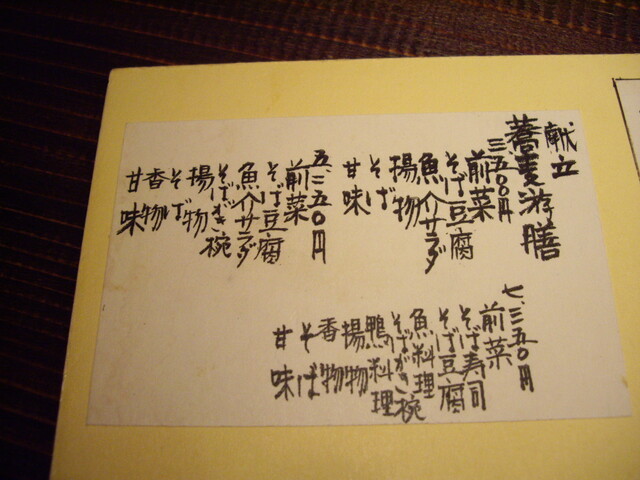 献立
蕎麦游膳
三五〇〇円
前菜
そば豆腐
魚介サラダ
揚物
そば
甘味
五、二五〇円
前菜
そば豆腐
魚介サラダ
そばがき椀
揚物
そば
香物
甘味
七、三五〇円
前菜
そば寿司
そば豆腐
魚料理
そばがき椀
鴨料理
揚物
香物
そば
甘味